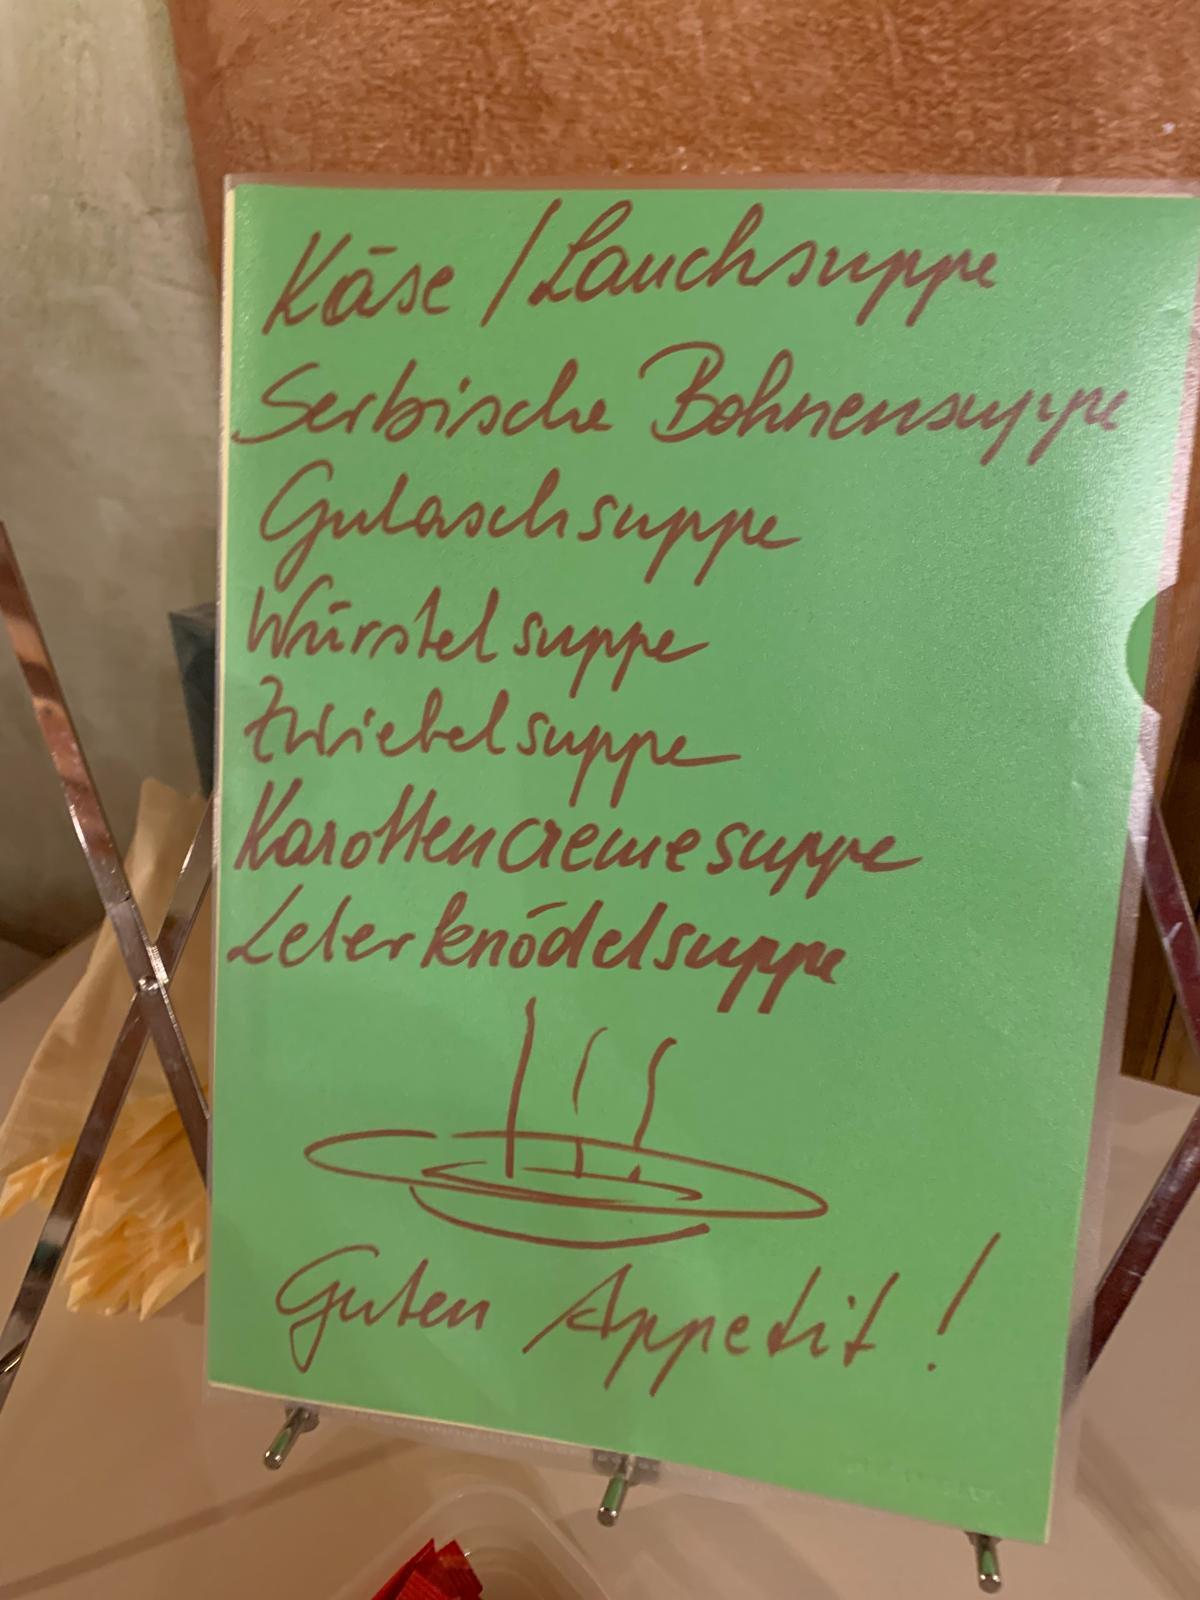 Käse / Lauchsuppe
Serbische Bohnensuppe
Gulaschsuppe
Würstelsuppe
Zwiebelsuppe
Karottencremesuppe
Leberknödelsuppe
Guten Appetit !